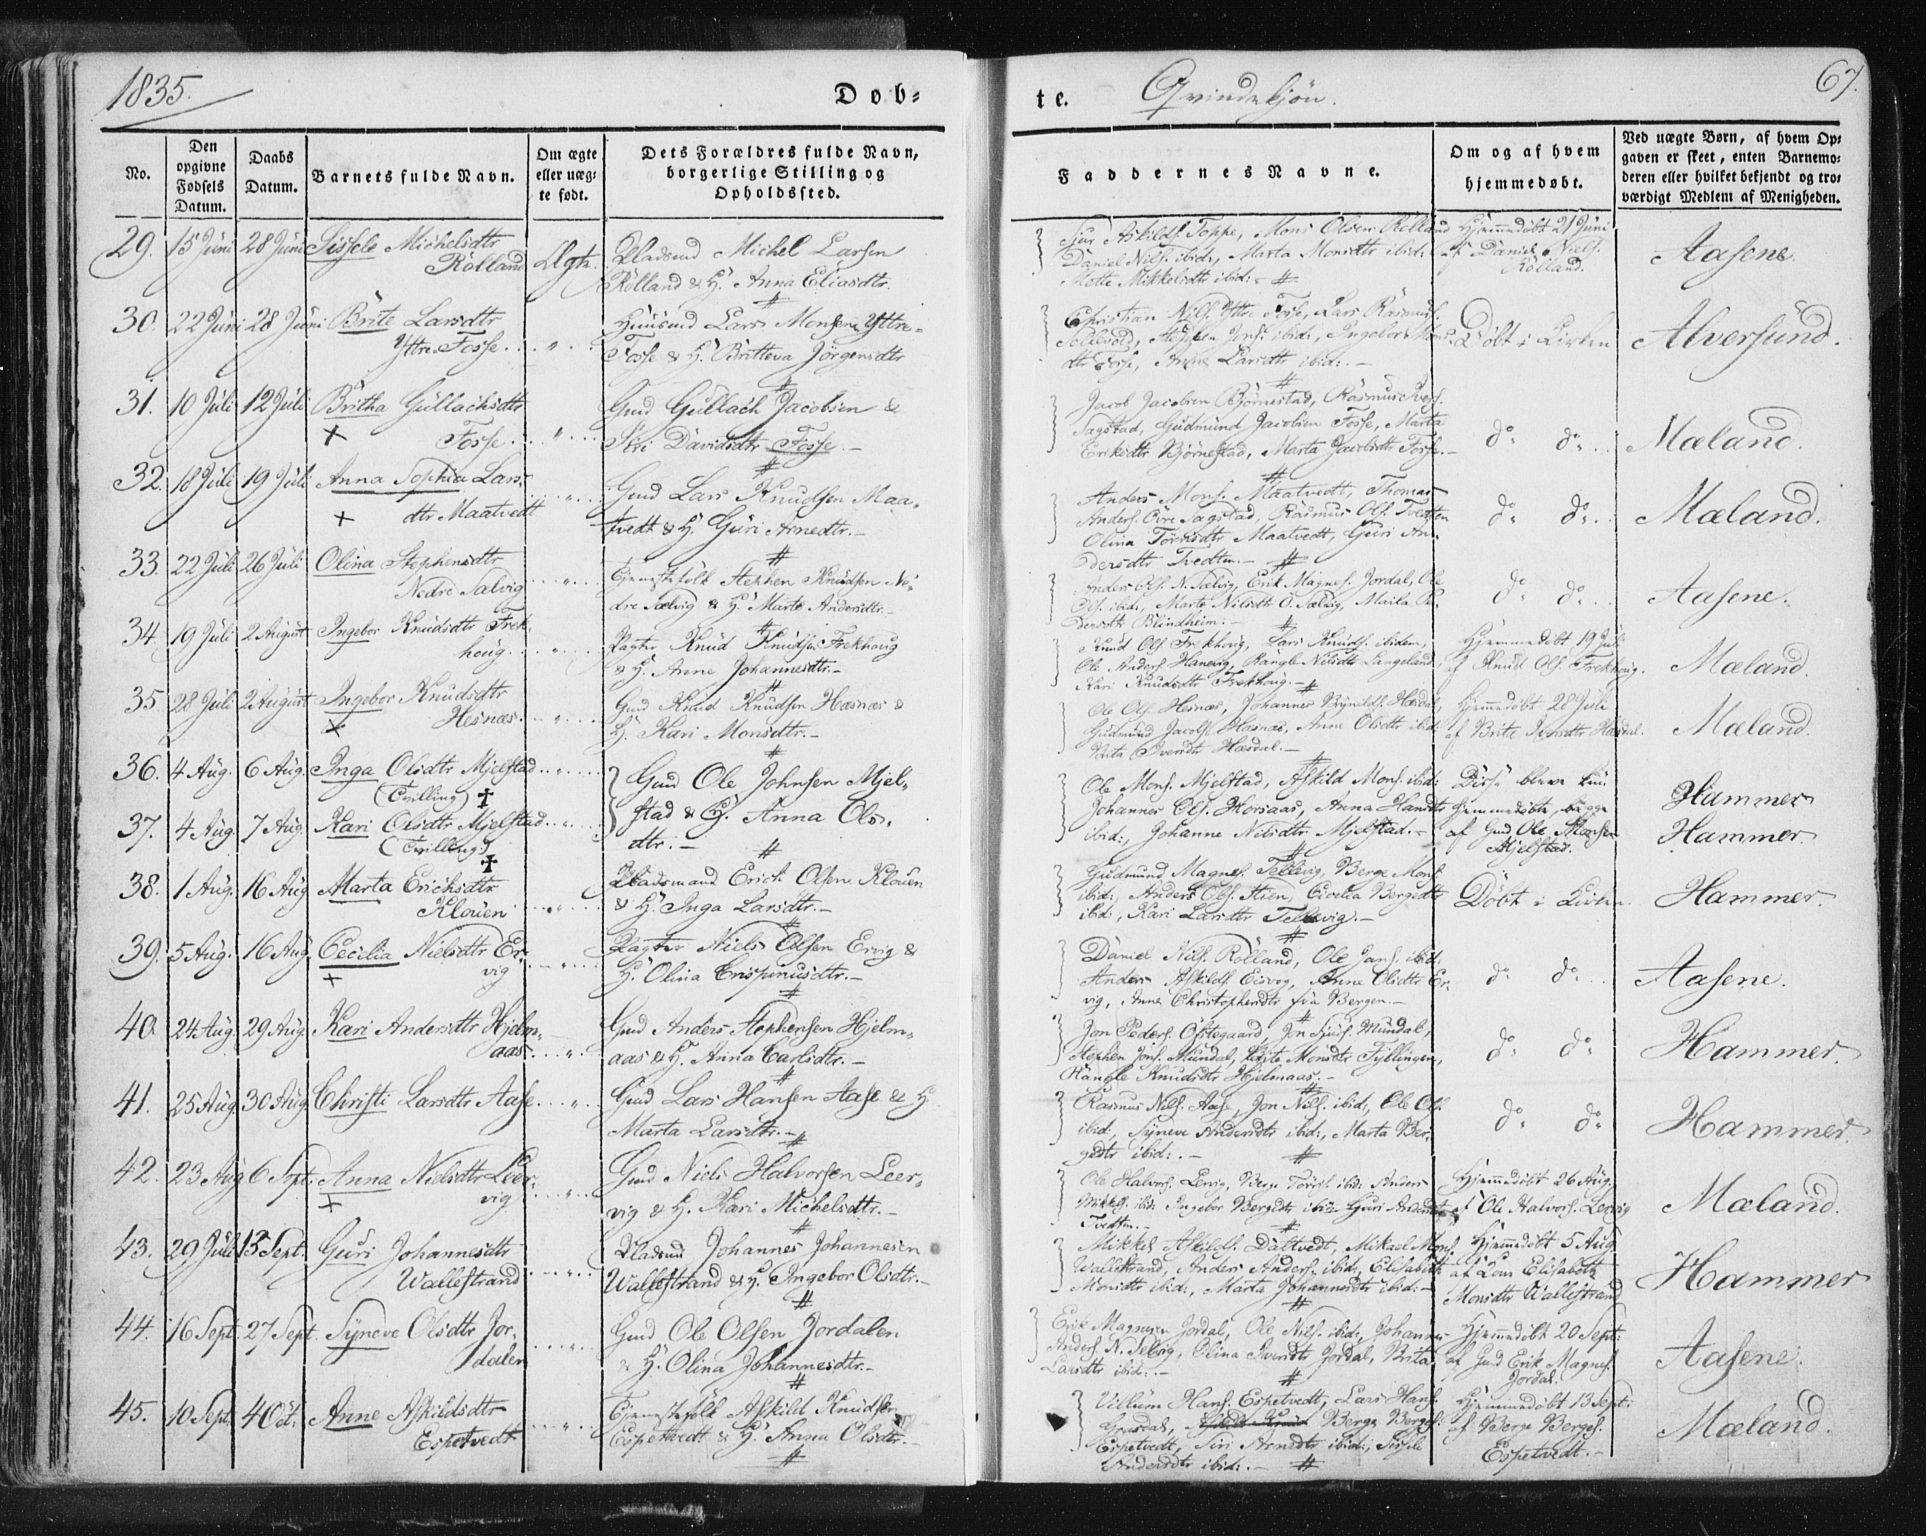 1835.
Døb-
te.
Qvindekjøn.
67.
No.
Den opgivne Fødsels Datum.
Daabs Datum.
Barnets fulde Navn.
Om ægte eller uæg-te født.
Dets Forældres fulde Navn, borgerlige Stilling og Opholdssted.
Faddernes Navne.
Om og af hvem hjemmedøbt.
Ved uægte Børn, af hvem Op-gaven er skeet, enten Barnemo-deren eller hvilket bekjendt og tro-værdigt Medlem af Menigheden.
29. 15 Juni 28 Juni Sissele Michelsdtr
Rölland
Pladsmd Michel Larsen
Rölland & H. Anna Eliasdtr.
Sjur Askilds. Toppe, Mons Olsen Rölland
Daniel Nils. ibid:, Marta Monsdtr ibid:,
Mette Mikkelsdtr ibid:-
Hjemmedöbt 21 Juni
af Daniel Niels.
Rölland.
Aasene
30. 22 Juni 28 Juni Brite Larsdtr
Yttre Fosse
Huusmd Lars Monsen Yttre-
Fosse & H. Britteva Jörgensdtr
Christian Nils. Yttre Fosse, Lars Rasmus.
Stephen Jons. ibid:, Ingebor Mons-
dtr Fosse, Larsdtr ibid:. -
Döbt i Kirken
Alversund.
31. 10 Juli 12 Juli Britha Gullachsdtr
+ Fosse
Gmd Gullach Jacobsen &
Siri Davidsdtr Fosse.-
Jacob Jacobsen Bjørnestad, Rasmus Ivers.
Sagstad, Gudmund Jacobsen Fosse, Marta
Eriksdtr Bjørnestad, Marta Jacobsdtr Fosse.-
do do
Mæland.
32. 18 Juli 19 Juli Anna Sophia Lars-
+ dtr Maatvedt
Gmd Lars Knudsen Maa-
tvedt & H. Guri Arnedtr.-
Anders Mons. Maatvedt, Thomas
Anders. Övre Sagstad, Rasmus Ols. Tvedten
Olina Maatvedt, Guri An-
dersdtr Tvedten.-
do do
Mæland.
33. 22 Juli 26 Juli Olina Stephensdtr
Nedre Sælvig
Tjenestefolk Stephen Knudsen Ne-
dre Sælvig & H. Marte Andersdtr.-
Anders Ols. N. Sælvig, Erik Magnes. Jordal, Ole
Ols. ibid:, Marte Nilsdtr Ö. Sælvig, Pe-
dersdtr Blindheim:-
do do
Aasene.
34. 19 Juli 2 August Ingebor Knudsdtr Frek-
houg
Pagter Knud Knudsen Frekhoug
& H. Anne Johannesdtr.-
Knud Ols. Frekhoug, Lars Knuds. ibidem,
Ole Anders. Hanevig, Rangle Nilsdtr Langeland
Kari Knudsdtr Frekhoug.-
Hjemmedöbt 19 Juli
af Knud Ols. Frekhoug.
Mæland.
35. 28 Juli 2 August Ingebor Knudsdtr
+ Hesnæs
Gmd Knud Knudsen Hæsnæs &
H. Kari Monsdtr.-
Ole Ols. Hesnæs, Johannes Brynilds. Hæsdal,
Gudmund Jacobs. Hæsnæs, Anne Olsdtr ibid:
Iversdtr Hæsdal.-
Hjemmedöbt 28 Juli
af Britte Iversdtr Hæsdal.
Mæland.
36. 4 Aug. 6 Aug. Inga Olsdtr Mjelstad
(Tvilling) †
Gmd Ole Johnsen Mjel-
stad & H. Anna Ols-
dtr.-
Ole Mons. Mjelstad, Askild Mons. ibid:
Johannes Ols. Horsaas, Anna Hansdtr
ibid:, Johanne Nilsdtr Mjelstad.-
Disse bleve kun
hjemmedöbte begge
af Gmd Ole
Mjelstad.
Hammer
37. 4 Aug. 7 Aug. Kari Olsdtr Mjelstad
(Tvilling) †
Hammer
38. 1 Aug. 16 Aug. Marta Erichsdtr
Klouen
Pladsmand Erich Olsen Klouen
& H. Inga Larsdtr.-
Gudmund Magnes. Tellevig, Berge Mons.
ibid:, Anders Ols. Steen, Cicelia Bergesdtr
ibid:, Kari Larsdtr Tellevig.-
Döbt i Kirken
Hammer.
39. 5 Aug. 16 Aug. Cecilia Nielsdtr Er-
+ vig
Pagter Niels Olsen Ervig &
H. Olina Crispinusdtr.-
Daniel Nils. Rölland, Ole Jans. ibid.
Anders Askilds. Eisvog, Anne Olsdtr Er-
vig, Anna Christophersdtr fra Bergen.-
do do
Aasene.
40. 24 Aug. 29 Aug. Kari Andersdtr Hjelm-
aas
Gmd Anders Stephensen Hjelm-
aas & H. Anna Carlsdtr.-
Jon Peders. Östegaard, Jon Sjurs. Mundal,
Stephen Jons. Mundal, Brite Monsdtr Fyllingen,
Rangle Knudsdtr Hjelmaas.-
do do
Hammer.
41. 25 Aug. 30 Aug. Christi Larsdtr Aase
Gmd Lars Hansen Aase & H
Marta Larsdtr.-
Rasmus Nils. Aase, Jon Nils. ibid:, Ole Ols.
ibid:, Syneve Andersdtr ibid:, Marta Ber-
gedtr ibid:.-
do do
Hammer.
42. 23 Aug 6 Sept. Anna Nielsdtr Leer-
+ vig
Gmd Niels Halvorsen Leer-
vig & H. Kari Michelsdtr.-
Ole Halvors. Lervig, Berge ibid: Anders
Mikkels. ibid: Ingebor Bergesdtr ibid: Guri Andersdtr
Tvedten.-
Hjemmedöbt 26 Aug.
af Ole Halvors. Lervig
Mæland.
43. 29 Juli 13 Sept. Guri Johannesdtr
Wallestrand
Pladsmd Johannes Johannesen
Wallestrand & H. Ingebor Olsdtr.-
Mikkel Askilds. Daltvedt, Mikael Mons.
Wallestrand, Anders Anders. ibid:, Elisabeth
Monsdtr ibid:, Marta Johannesdtr ibid:-
Hjemmedöbt 5 Aug
af Kone Elisabeth
Monsdtr Wallestrand
Hammer
44. 16 Sept. 27 Sept. Syneve Olsdtr Jor-
dalen
Gmd Ole Olsen Jordalen
& H. Olina Johannesdtr.-
Erik Magnesen Jordal, Ole Nils. ibid:, Johannes
Anders. N. Selvig, Olina Iversdtr Jordal, Brita
Larsdtr ibid:.-
Hjemmedöbt 20 Sept:
af Gmd Erik Magnes.
Jordal.
Aasene.
45. 10 Sept. 4 Oct. Anne Askildsdtr
Espetvedt
Tjenestefolk Askild Knudsen
Espetvedt & H. Anna Olsdtr.-
Villum Hans. Espetvedt, Lars Hans.
Berge Berges.
Espetvedt, Siri Arnedtr ibid:, Sissele
Andersdtr ibid:.-
Hjemmedöbt 13 Sept:
af Berge Berges.
Espetvedt.-
Mæland.